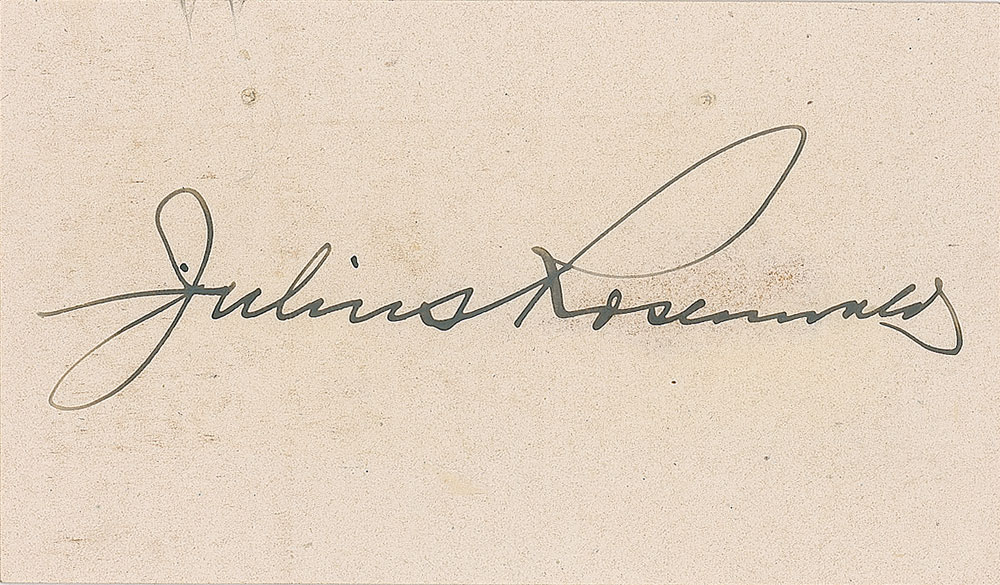 Julius Rosenwald